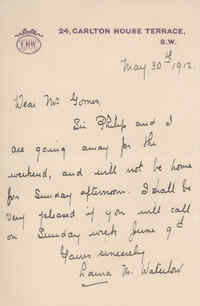 24, CARLTON HOUSE TERRACE,
S.W.
May 30th 1912.
Dear Mr Gomer,
Sir Philip and I
are going away for the
weekend, and will not be home
for Sunday afternoon. I shall be
very pleased if you will call
on Sunday week June 9th
Yours sincerely
Laura M. Waterlow